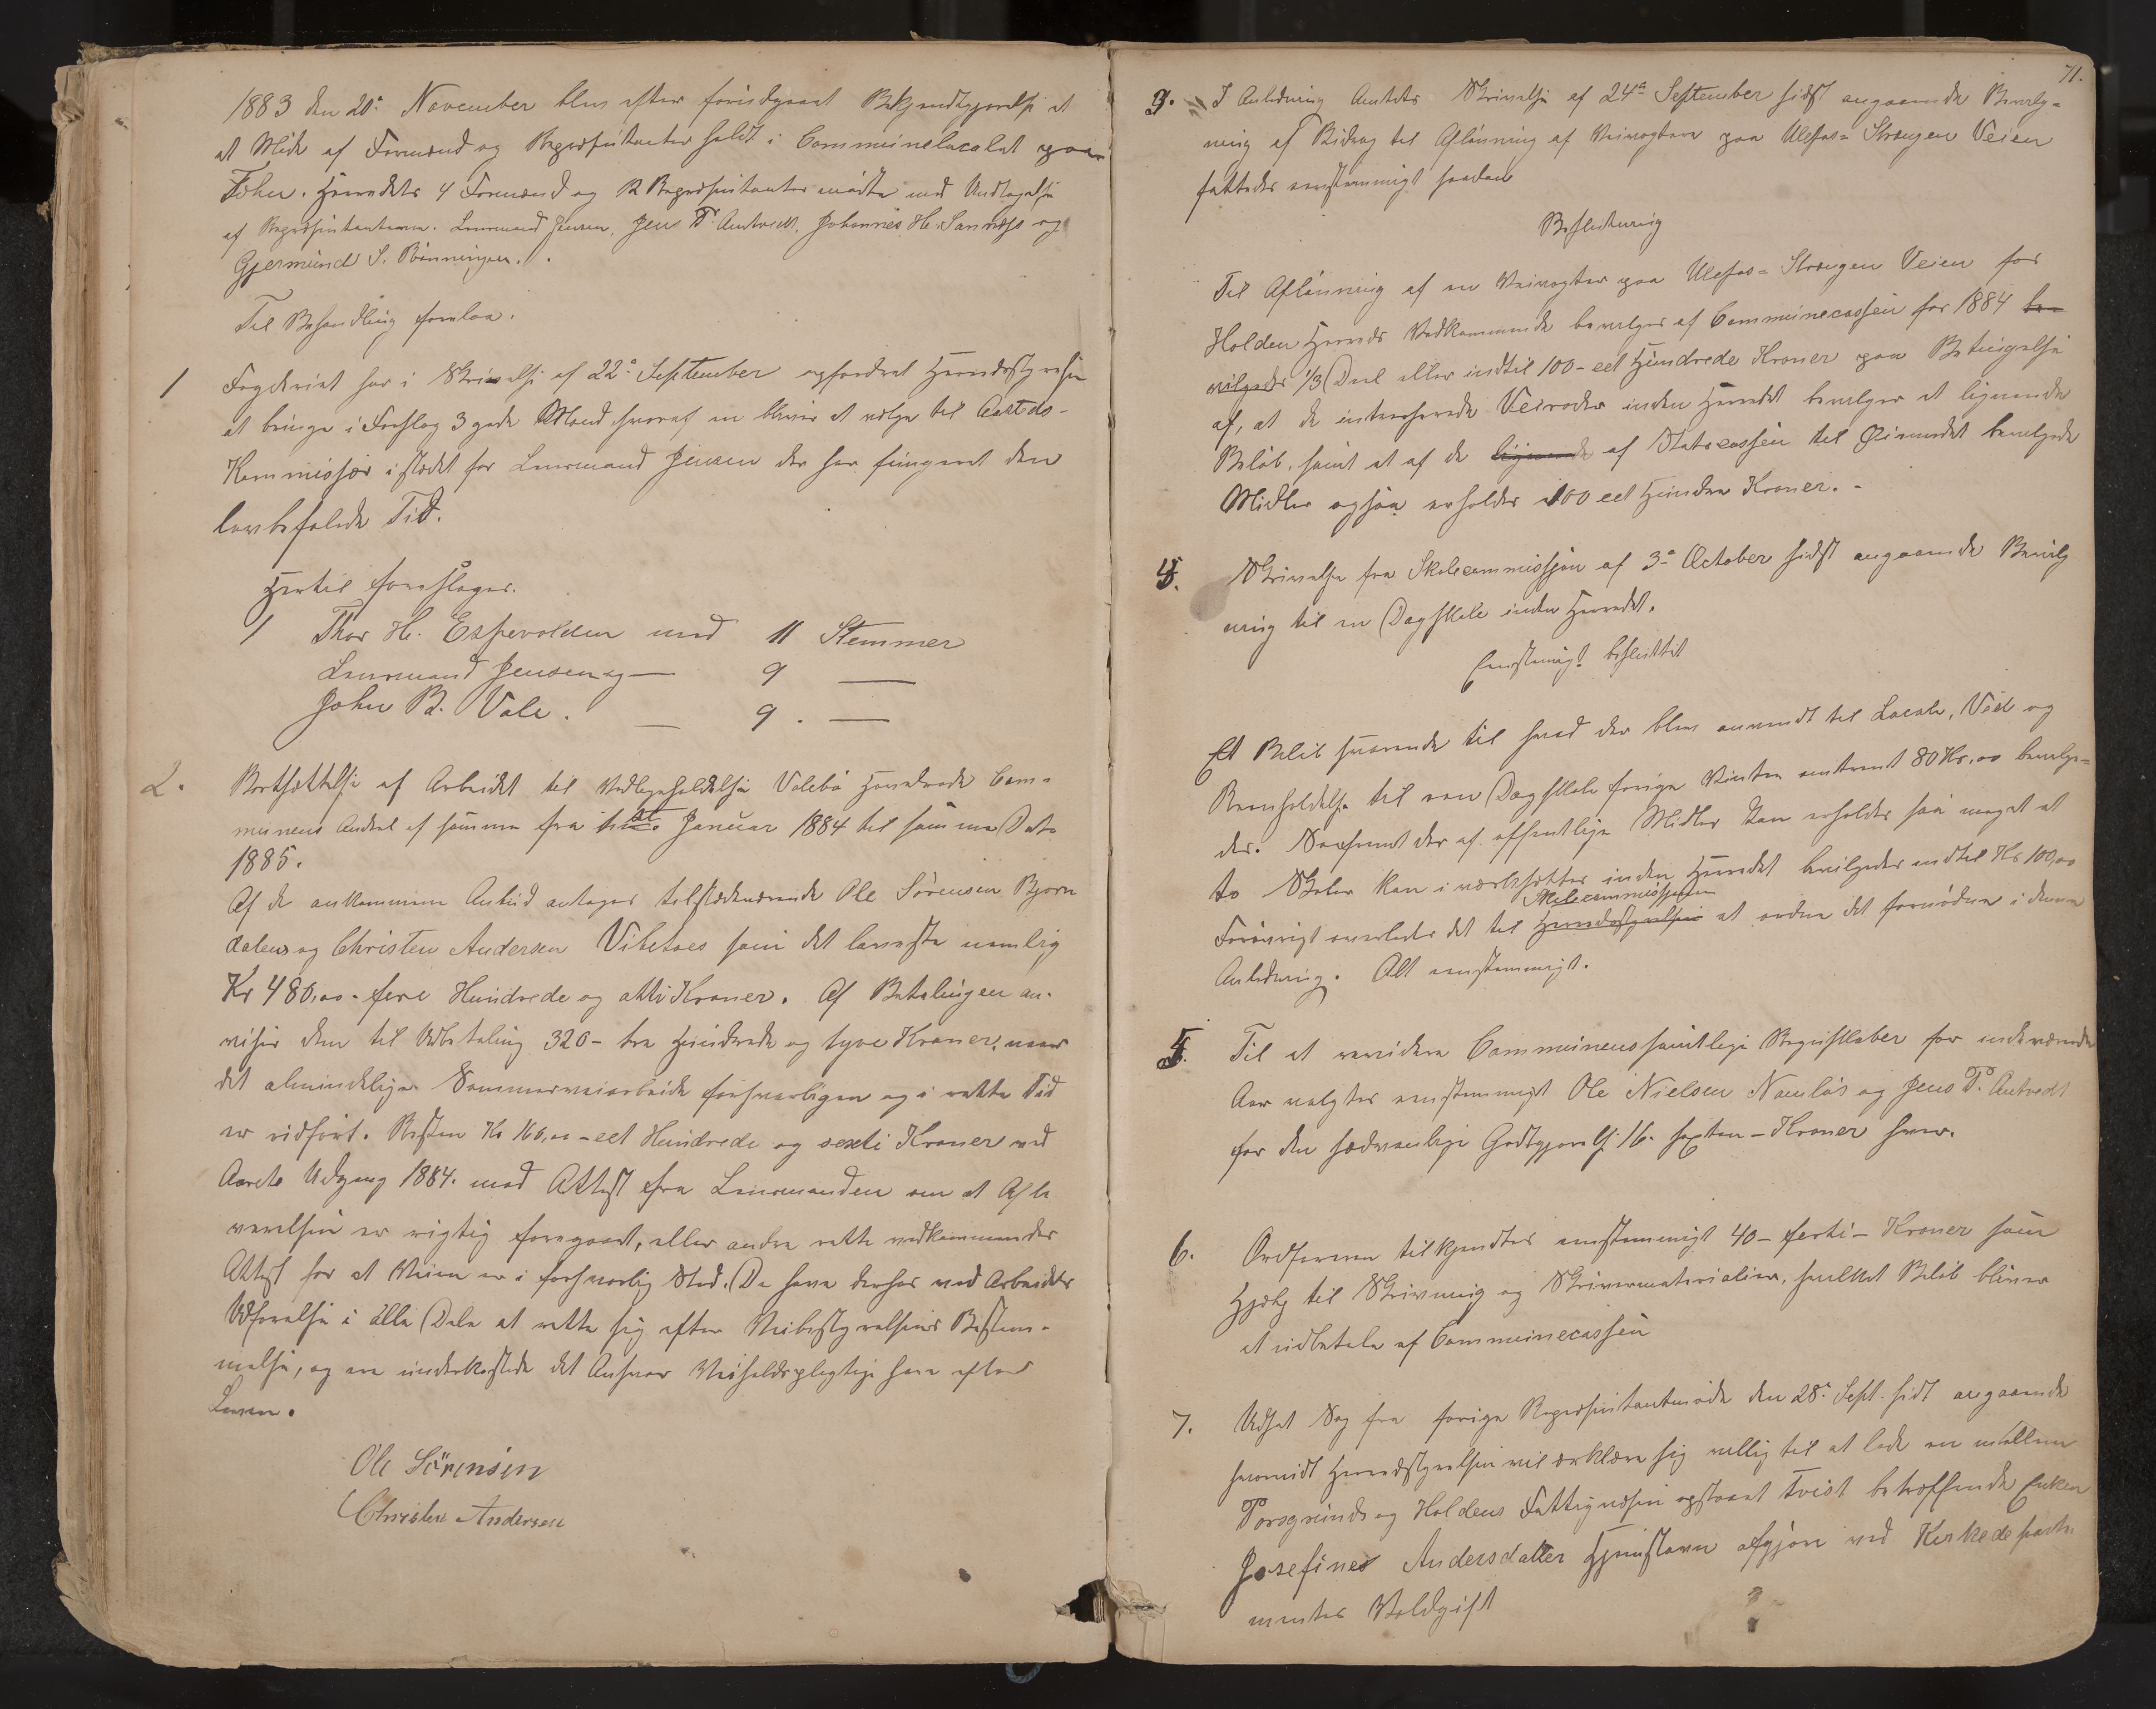 1883 den 20de November blev efter foriudgaaet Bekjendtgjørelse et
et Møde af Formænd og Repræsentanter holdt i Communelocalet paa
Fæhn. Herredets 4 Formænd og 12 Repræsentanter mødte med Undtagelse
af Repræsentanterne. Lensmand Jensen, Jens P. Antvedt, Johannes H. Sannæss og
Gjermund S. Rønningen.
Til Behandling forelaa.
1 Fogderiet har i Skrivelse af 22de September opfordret Herredsstyrelsen
at bringe i Forslag 3 gode Mænd hvoraf en bliver at vælge til Aasteds-
Kommissær istedet for Lensmand Jensen der har fungeret den
lovbefalede Tid.
Hertil foreslages.
1 Thor H. Espevolden med 11 Stemmer
Lensmand Jensen og — 9 —
John B. Vale. — 9. —
2. Bortsættelse af Arbeidet til Vedligeholdelse Valebø Hovedvede Com-
munens Andel af samme fra 1st Januar 1884 til samme Dato
1885.
Af de ankommne Anbud antages tilstedeværende Ole Sørensen Bjørn
dalen og Christen Andersen Vibetoes som det laveste nemlig
Kr 480,00 - fire Hundrede og otti Kroner. Af Betalingen an-
vises dem til Udbetaling 320 - tre Hundrede og tyve Kroner, naar
det almindelige Sommerveiarbeide forsvarligen og i rette Tid
er udført. Resten Kr 160,00 - eet Hundrede og sexti Kroner ved
Aarets Udgang 1884. mod Attest fra Lensmanden om at Afle
verelsen er rigtig foregaaet, eller andre rette vedkommendes
Attest for at Veien er i forsvarlig Stand. De have derhos ved Arbeidets
Udførelse i alle Dele at rette sig efter Veibestyrelsens Bestem-
melse, og ere underkastede det Ansvar Veiholdspligtige have efter
Loven.
Ole Sørensen
Christen Andersen
71.
3. I Anledning Amtets Skrivelse af 24de September sidst angaaende Bevilg-
ning af Bidrag til Aflønning af Veivogtere paa Ulefos-Strengen Veien
fattedes eenstemmigt saadan
Beslutning
Til Aflønning af en Veivogter paa Ulefos-Strengen Veien for
Holden Herreds Vedkommende bevilges af Communecassen for 1884 be-
vilgedes 1/3 Deel eller indtil 100 - eet Hundrede Kroner paa Betingelse
af, at de interesserede Veiroder inden Herredet bevilger et lignende
Beløb, samt at af de lignende af Statscassen til Øiemedet bevilgede
Midler ogsaa erholdes 100 eet Hundre Kroner. -
4. Skrivelse fra Skolecommissjon af 3de October sidst angaaende Bevilg
ning til en Dagskole inden Herredet.
Eenstemigt besluttet
Et Beløb svarende til hvad der blev anvendt til Locale, Ved og
Reenholdelse til een Dagskole forige Vinter omtrent 80 Kr.00 bevilge-
des. Saafremt der af offentlige Midler kan erholdes saa meget at
to Skoler kan iværksættes inden Herredet bevilgedes indtil Kr 100,00
Skolecommissjonen
Forøvrigt overlodes det til Herredsstyrelsen at ordne det fornødne i denne
Anledning. Alt eenstemmigt.
5. Til at revidere Communens samtlige Regnskaber for indeværende
Aar valgtes eenstemmigt Ole Nielsen Namløs og Jens P. Antvedt
for den sædvanlige Godtgjørelse 16 - sexten - Kroner hver.
6. Ordføreren tilkjendtes eenstemmigt 40 - førti - Kroner som
Hjælp til Skrivning og Skrivematerialier, hvilket Beløb bliver
at udbetale af Communecassen
7. Udsat Sag fra forige Repræsentantmøde den 28de Sept. sidst angaaende
hvorvidt Herredstyrelsen vil erklære sig villig til at lade en mellem
Porsgrunds og Holdens Fattigvæsen opstaaet Tvist betræffende Enken
Josefine Andersdatter Hjemstavn afgjøre ved Kirkedeparte-
mentes Voldgift